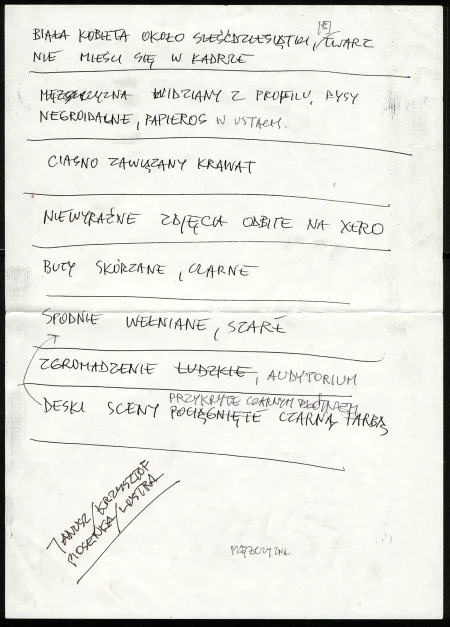 [JEJ]
BIAŁA KOBIETA OKOŁO SZEŚĆDZIESIĄTKI, TWARZ
NIE MIEŚCI SIĘ W KADRZE
MĘŻCZYZNA WIDZIANY Z PROFILU, RYSY
NEGROIDALNE, PAPIEROS W USTACH.
CIASNO ZAWIĄZANY KRAWAT
NIEWYRAŹNE ZDJĘCIA ODBITE NA XERO
BUTY SKÓRZANE, CZARNE
SPODNIE WEŁNIANE, SZARE
ZGROMADZENIE LUDZKIE, AUDYTORIUM
PRZYKRYTE CZARNYM PŁÓTNEM
DESKI SCENY POCIĄGNIĘTE CZARNĄ FARBĄ
JANUSZ/KRZYSZTOF
PIOSENKA/LUSTRA
MĘŻCZYZNA